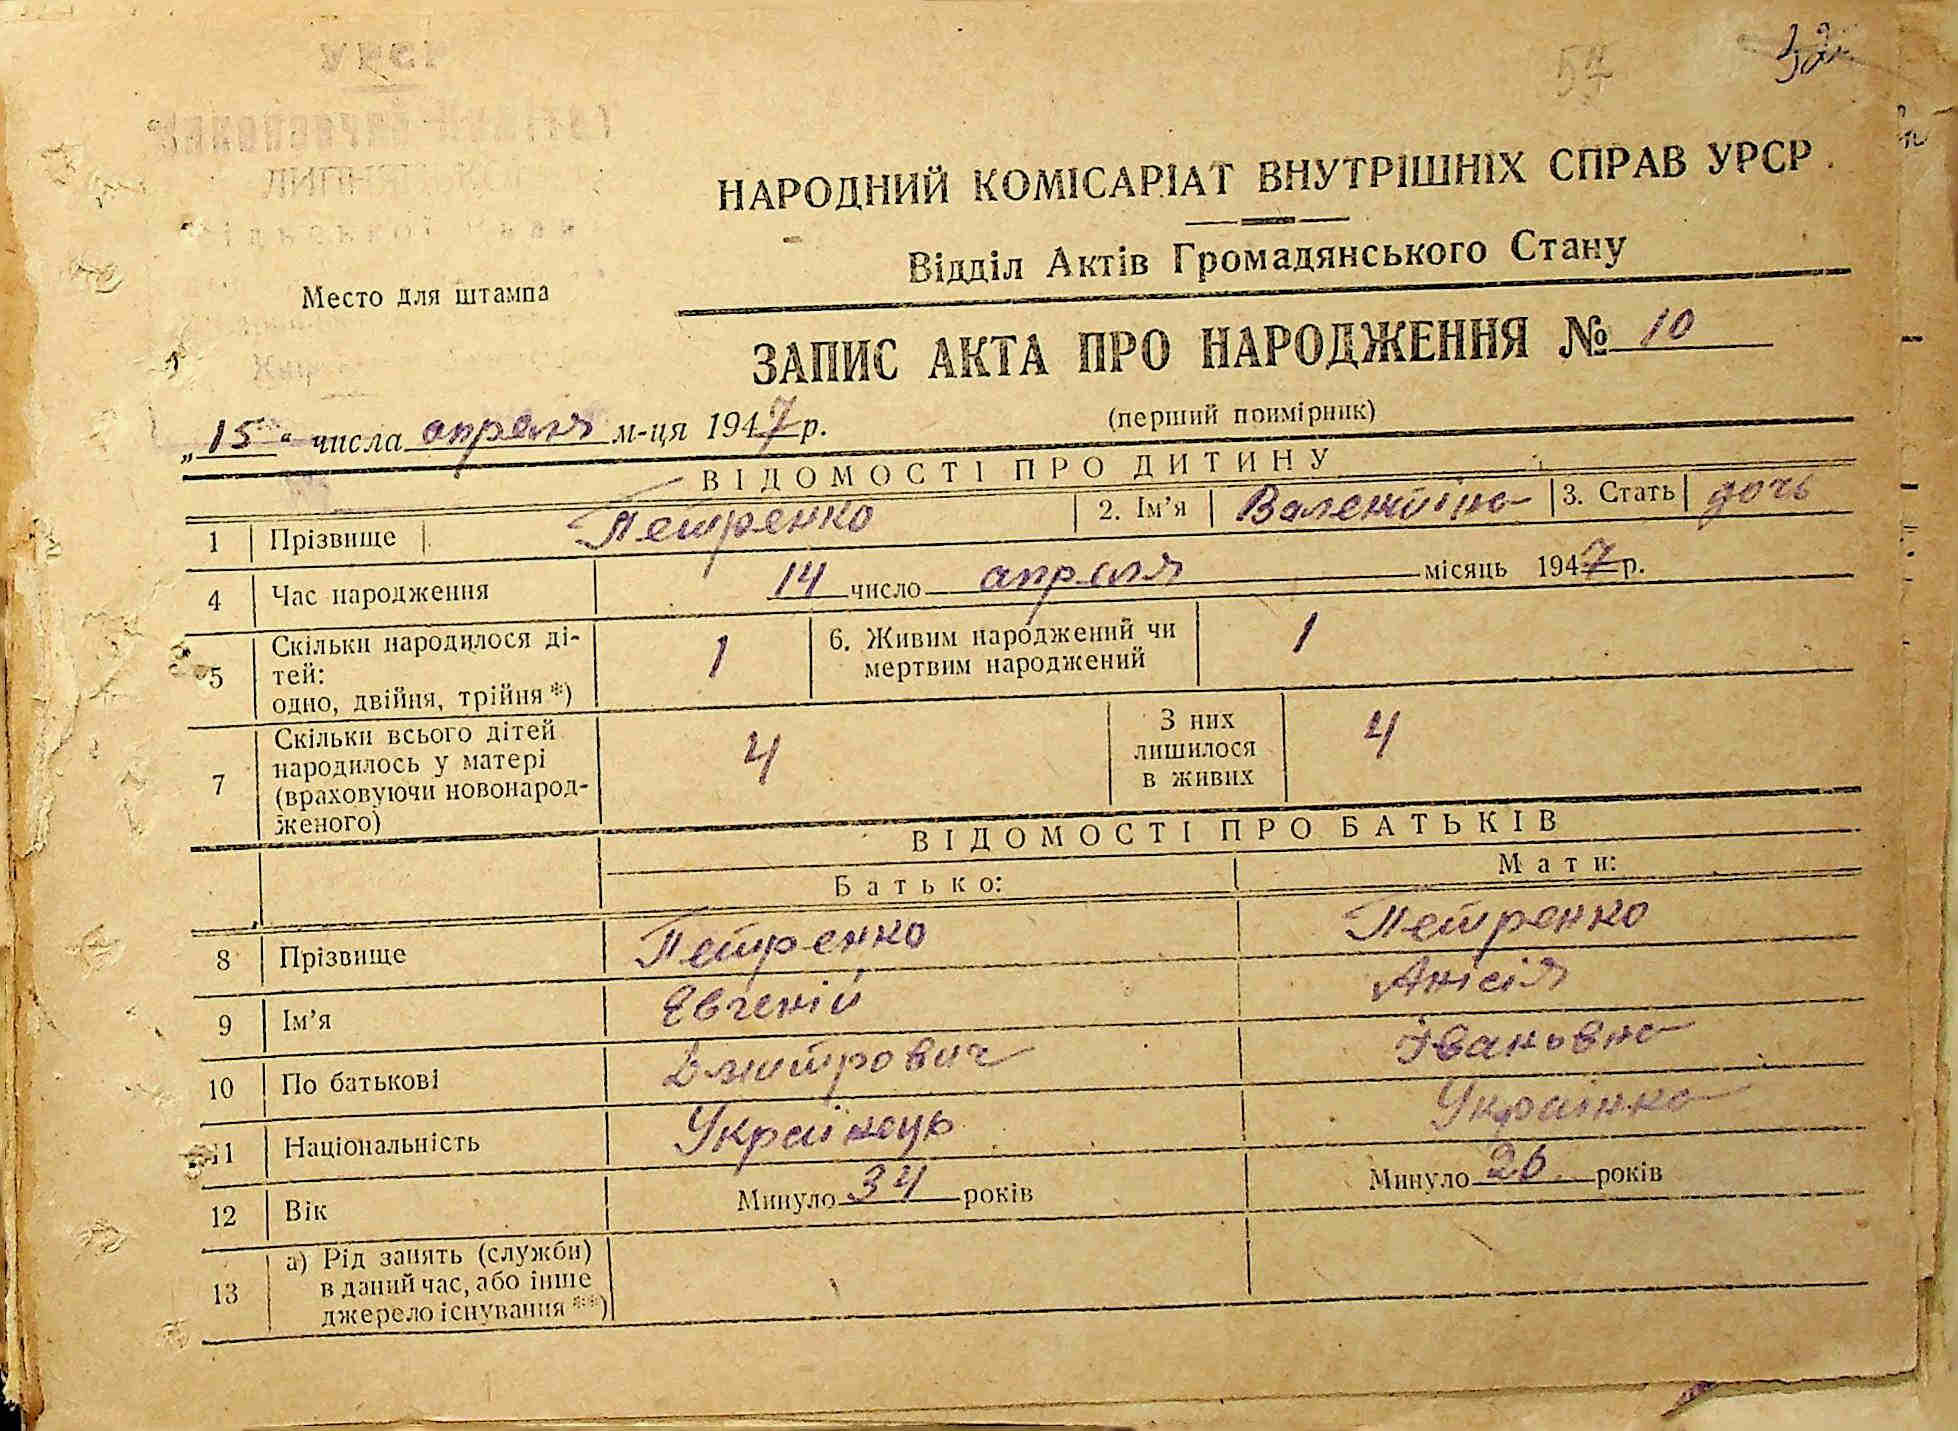 УРСР
57
НАРОДНИЙ КОМІСАРІАТ ВНУТРІШНІХ СПРАВ УРСР
Відділ Актів Громадянського Стану
Место для штампа
ЗАПИС АКТА ПРО НАРОДЖЕННЯ № 10
(перший поимірник)
„15“ числа апреля м-ця 1947 р.
ВІДОМОСТІ ПРО ДИТИНУ
1 Прізвище Петренко 2. Ім'я Валентіна 3. Стать дочь
4 Час народження 14 число апреля місяць 1947 р.
5 Скільки народилося ді-
тей:
одно, двійня, трійня *) 1
6. Живим народжений чи
мертвим народжений 1
7 Скільки всього дітей
народилось у матері
(враховуючи новонарод-
женого) 4
З них
лишилося
в живих 4
ВІДОМОСТІ ПРО БАТЬКІВ
Батько: Мати:
8 Прізвище Петренко Петренко
9 Ім'я Евгеній Анісія
10 По батькові Дмитрович Івановна
11 Національність Українець Українка
12 Вік Минуло 34 років Минуло 26 років
13 а) Рід занять (служби)
в даний час, або інше
джерело існування **)